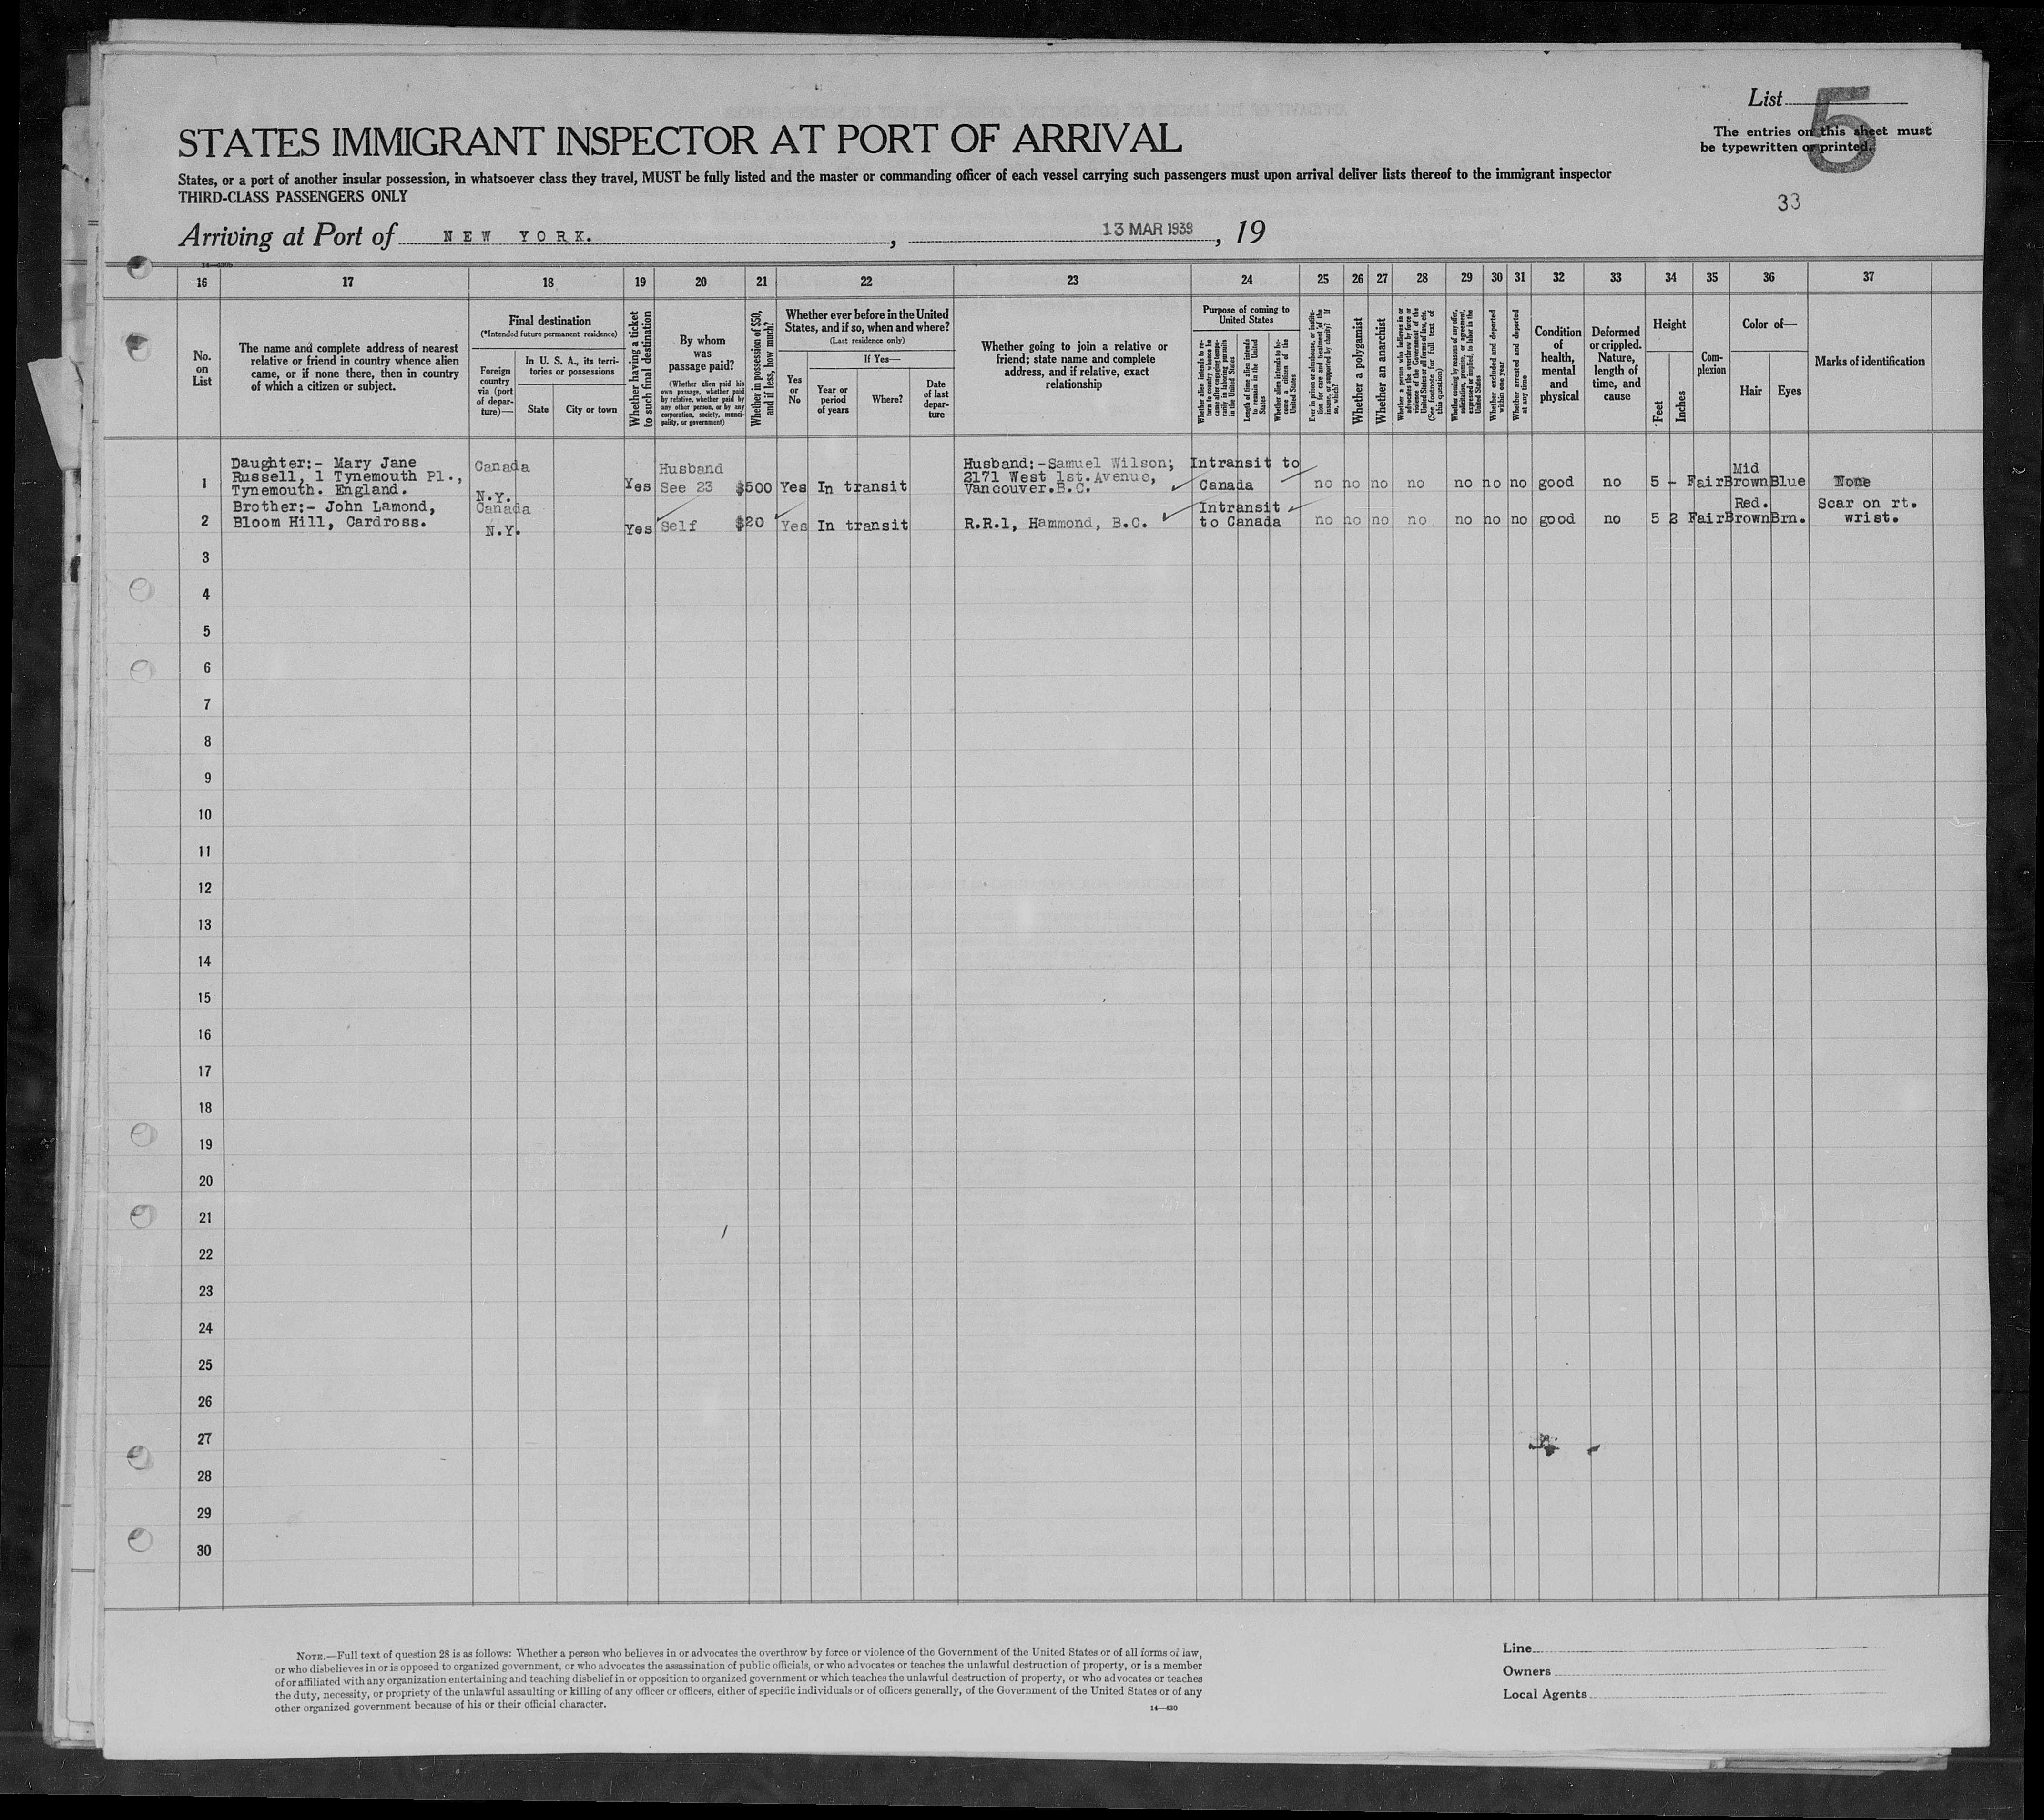 List 5
The entries on this sheet must
be typewritten or printed.
33
STATES IMMIGRANT INSPECTOR AT PORT OF ARRIVAL
States, or a port of another insular possession, in whatsoever class they travel, MUST be fully listed and the master or commanding officer of each vessel carrying such passengers must upon arrival deliver lists thereof to the immigrant inspector
THIRD-CLASS PASSENGERS ONLY
Arriving at Port of NEW YORK. , 13 MAR 1939 , 19
16 17 18 19 20 21 22 23 24 25 26 27 28 29 30 31 32 33 34 35 36 37
No.
on
List
The name and complete address of nearest
relative or friend in country whence alien
came, or if none there, then in country
of which a citizen or subject.
Final destination
(*Intended future permanent residence)
Foreign
country
via (port
of depar-
ture)—
In U. S. A., its terri-
tories or possessions
State
City or town
Whether having a ticket
to such final destination
By whom
was
passage paid?
(Whether alien paid his
own passage, whether paid
by relative, whether paid by
any other person, or by any
corporation, society, munici-
pality, or government)
Whether in possession of $50,
and if less, how much?
Whether ever before in the United
States, and if so, when and where?
(Last residence only)
Yes
or
No
If Yes—
Year or
period
of years
Where?
Date
of last
depar-
ture
Whether going to join a relative or
friend; state name and complete
address, and if relative, exact
relationship
Purpose of coming to
United States
Whether alien intends to re-
turn to country whence he
came after engaging tempo-
rarily in laboring pursuits
in the United States
Length of time alien intends
to remain in the United
States
Whether alien intends to be-
come a citizen of the
United States
Ever in prison or almshouse, or institu-
tion for care and treatment of the
insane, or supported by charity? If
so, which?
Whether a polygamist
Whether an anarchist
Whether a person who believes in or
advocates the overthrow by force or
violence of the Government of the
United States or all forms of law, etc.
(See footnote for full text of
this question)
Whether coming by reasons of any offer,
solicitation, promise, or agreement,
expressed or implied, to labor in the
United States
Whether excluded and deported
within one year
Whether arrested and deported
at any time
Condition
of
health,
mental
and
physical
Deformed
or crippled.
Nature,
length of
time, and
cause
Height
Feet
Inches
Com-
plexion
Color of—
Hair
Eyes
Marks of identification
1
Daughter:- Mary Jane
Russell, 1 Tynemouth Pl.,
Tynemouth. England.
Canada
N.Y.
Yes
Husband
See 23
$500
Yes In transit
Husband:-Samuel Wilson;
2171 West 1st.Avenue,
Vancouver.B.C.
Intransit to
Canada
no no no no no no no good no 5 - Fair
Mid
Brown Blue
None
2
Brother:- John Lamond,
Bloom Hill, Cardross.
Canada
N.Y.
Yes Self $20 Yes In transit
R.R.1, Hammond, B.C.
Intransit
to Canada
no no no no no no no good no 5 2 Fair
Red.
Brown Brn.
Scar on rt.
wrist.
3
4
5
6
7
8
9
10
11
12
13
14
15
16
17
18
19
20
21
22
23
24
25
26
27
28
29
30
NOTE.—Full text of question 28 is as follows: Whether a person who believes in or advocates the overthrow by force or violence of the Government of the United States or of all forms of law,
or who disbelieves in or is opposed to organized government, or who advocates the assassination of public officials, or who advocates or teaches the unlawful destruction of property, or is a member
of or affiliated with any organization entertaining and teaching disbelief in or opposition to organized government or which teaches the unlawful destruction of property, or who advocates or teaches
the duty, necessity, or propriety of the unlawful assaulting or killing of any officer or officers, either of specific individuals or of officers generally, of the Government of the United States or of any
other organized government because of his or their official character.
14—430
Line
Owners
Local Agents